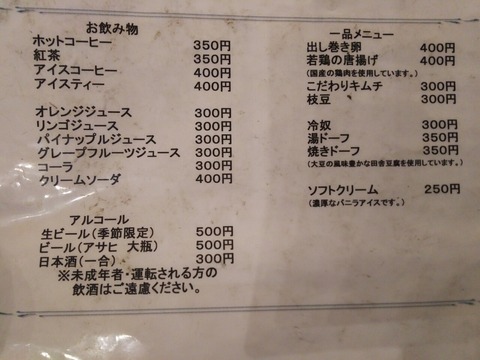 お飲み物
ホットコーヒー 350円
紅茶 350円
アイスコーヒー 400円
アイスティー 400円
オレンジジュース 300円
リンゴジュース 300円
パイナップルジュース 300円
グレープフルーツジュース 300円
コーラ 300円
クリームソーダ 400円
アルコール
生ビール(季節限定) 500円
ビール(アサヒ 大瓶) 500円
日本酒(一合) 300円
※未成年者・運転される方の
飲酒はご遠慮ください。
一品メニュー
出し巻き卵 400円
若鶏の唐揚げ 400円
(国産の鶏肉を使用しています。)
こだわりキムチ 300円
枝豆 300円
冷奴 300円
湯ドーフ 350円
焼きドーフ 350円
(大豆の風味豊かな田舎豆腐を使用しています。)
ソフトクリーム 250円
(濃厚なバニラアイスです。)